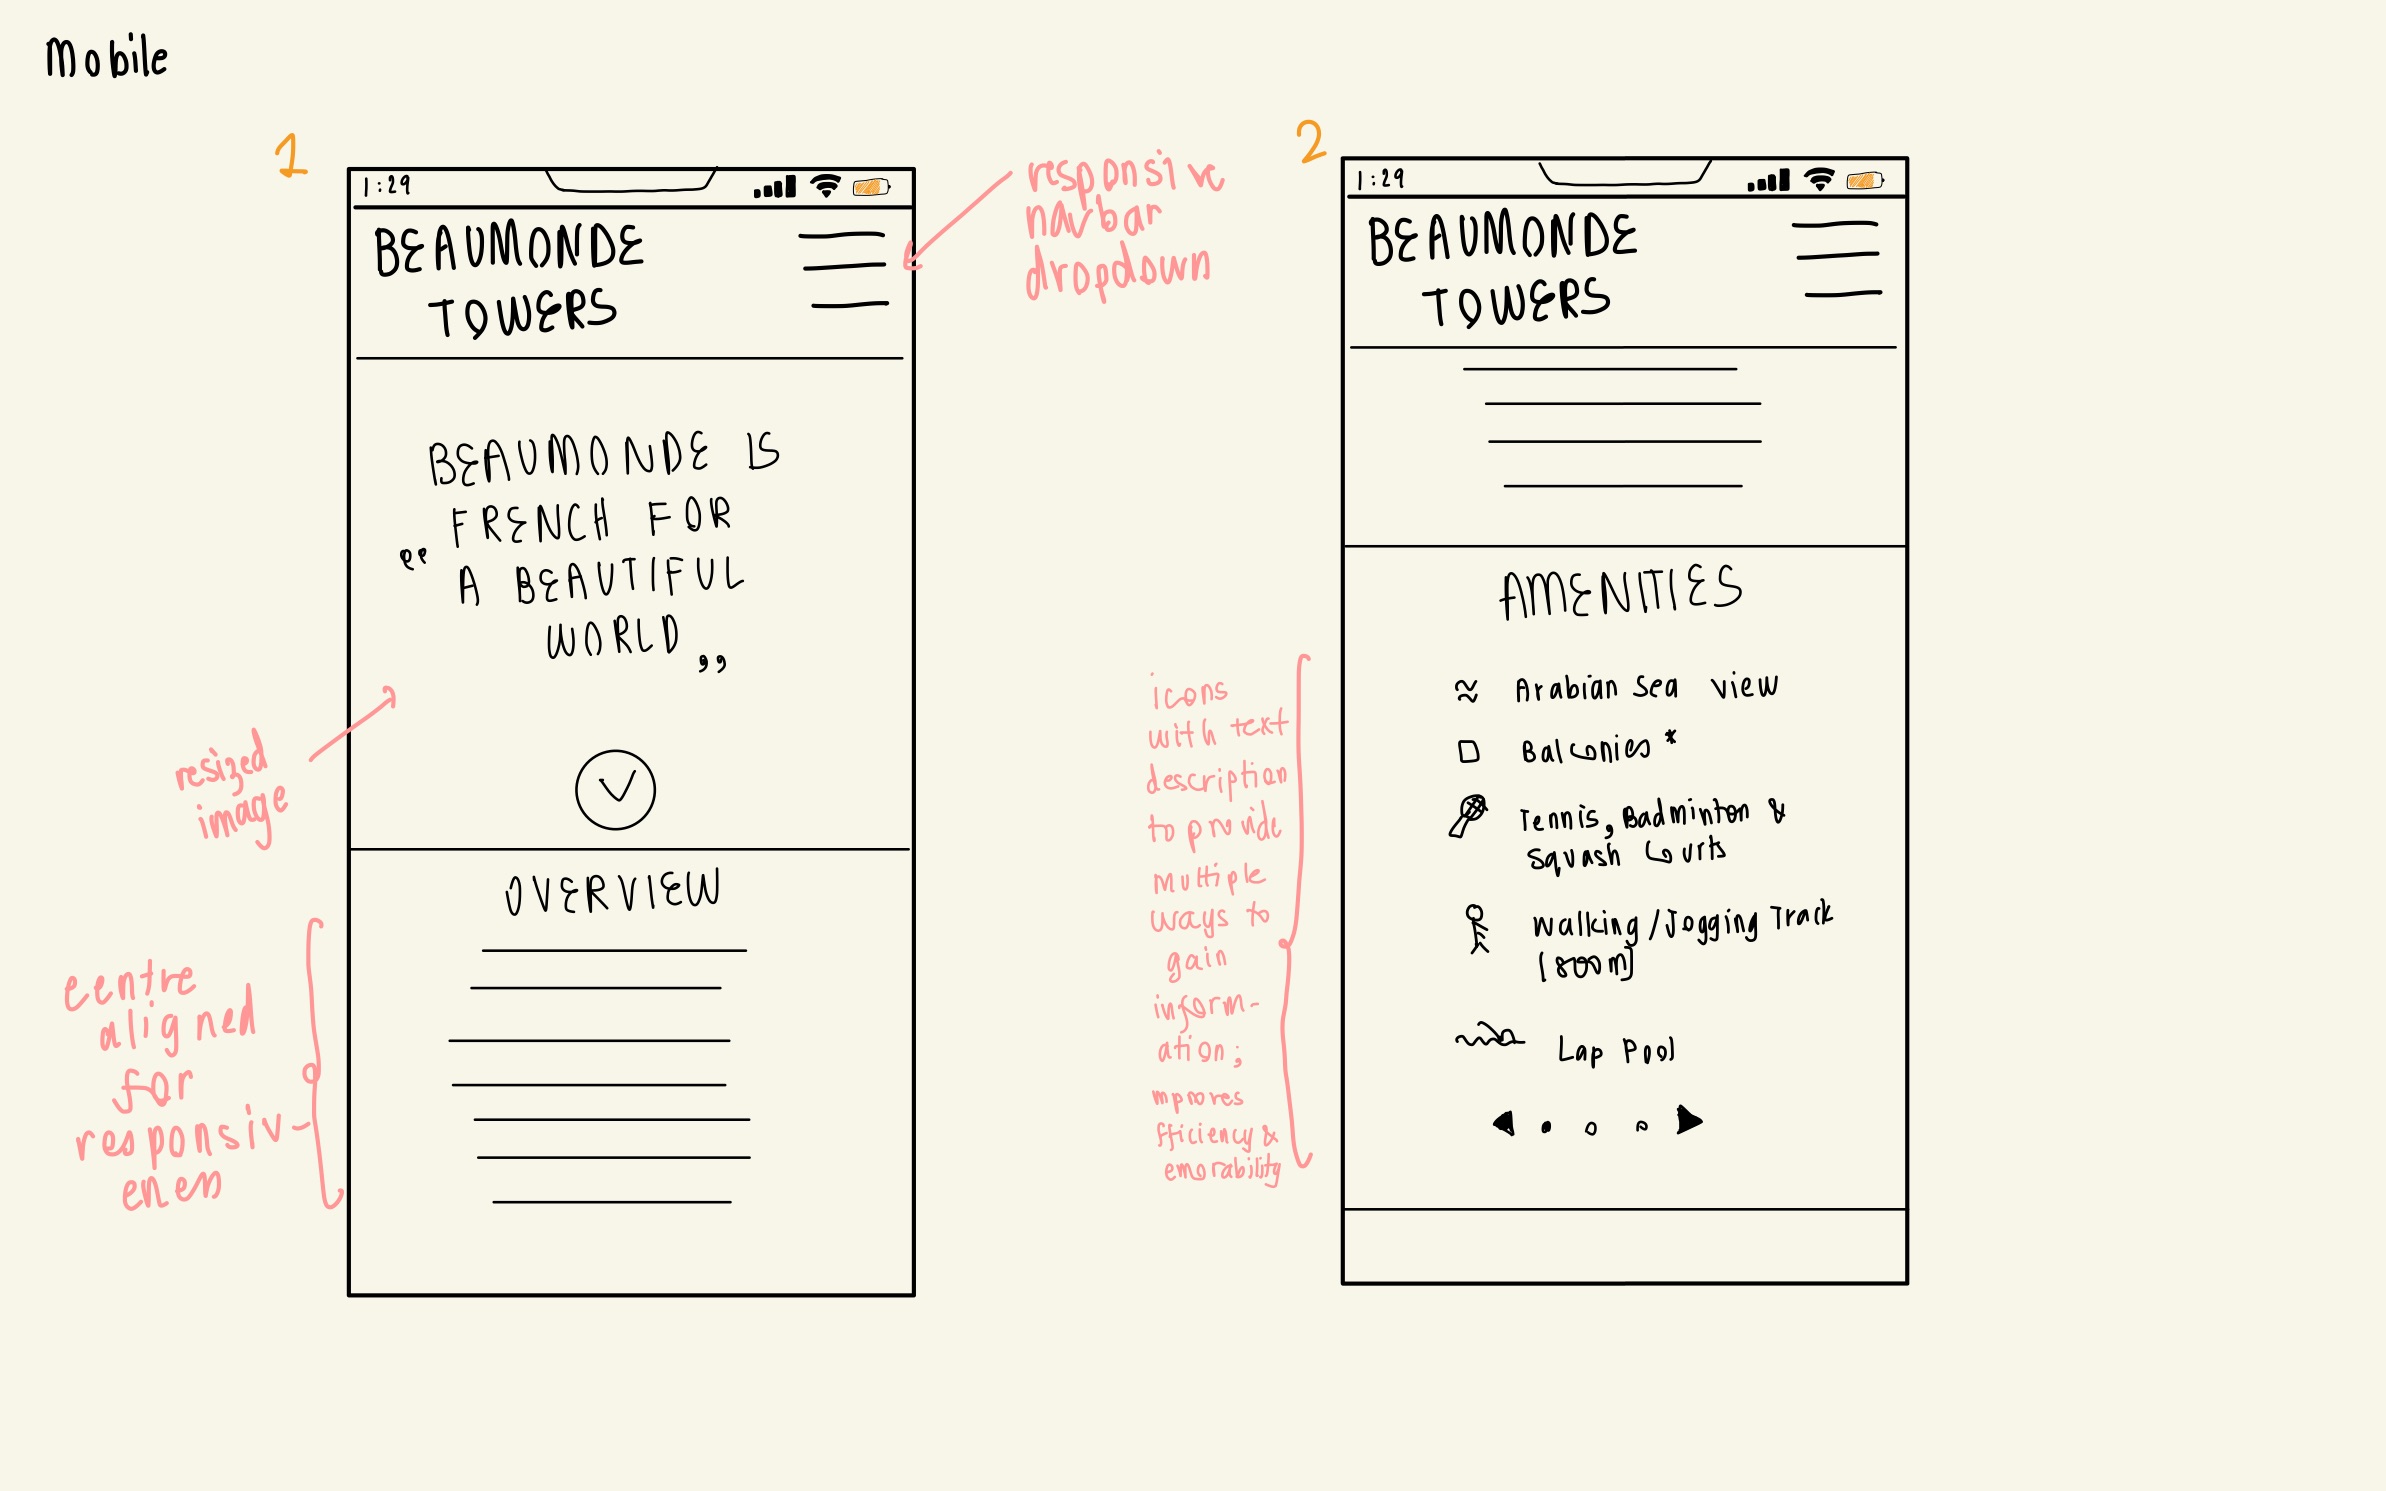 Mobile
1
1:29
BEAUMONDE
TOWERS
responsive
navbar
dropdown
BEAUMONDE IS
FRENCH FOR
“
A BEAUTIFUL
WORLD ”
resized
image
OVERVIEW
centre
aligned
for
responsiv-
eness
2
1:29
BEAUMONDE
TOWERS
AMENITIES
Arabian Sea view
Balconies *
Tennis, Badminton &
Squash Courts
Walking/Jogging Track
[800m]
Lap Pool
icons
with text
description
to provide
multiple
ways to
gain
inform-
ation;
mproves
fficiency &
emorability